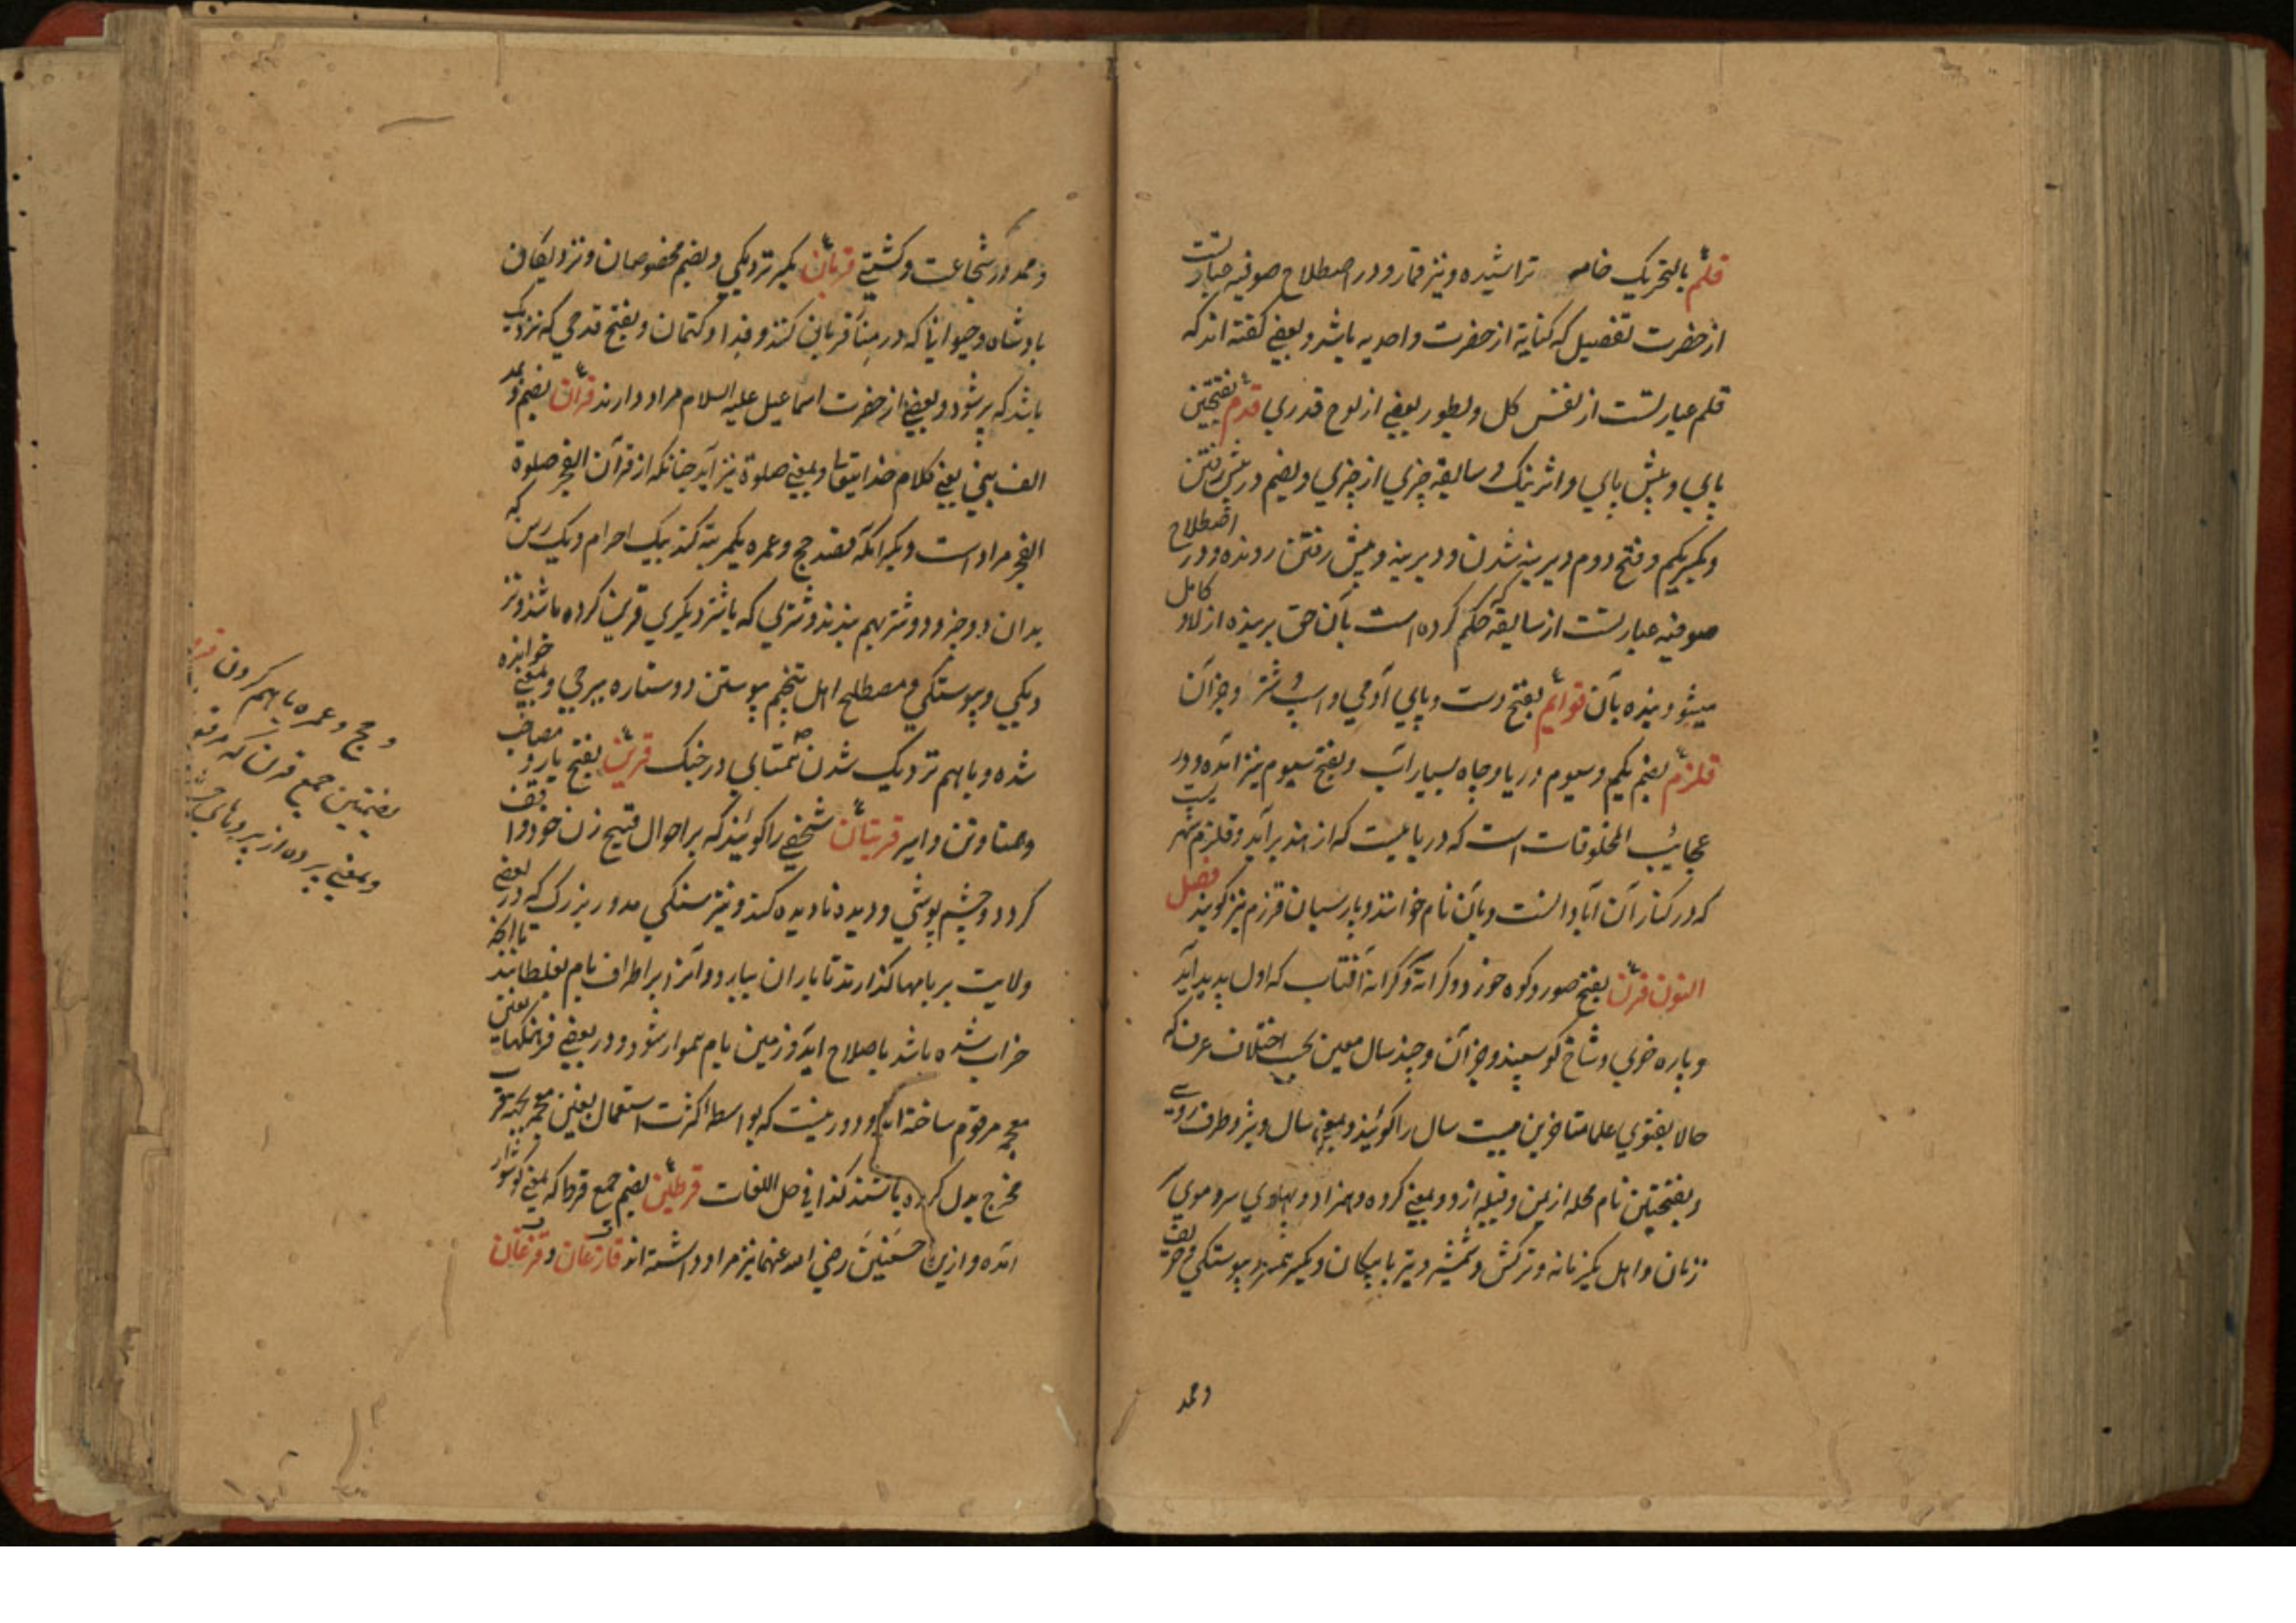 قلم بالتحریک خامه تراشیده و نیز قمار و در اصطلاح صوفیه عبارتست
از حضرت تفصیل که کنایة از حضرت واحدیه باشد و بعضے گفته اند که
قلم عبارتست از نفس کل و بطور بعضے از لوح قدری قدم بفتحتین
پای و پیش پای و اثر نیک و سابقه چیزی از چیزی و بضم در پیش رفتن
و بکسر یکم و فتح دوم دیرینه شدن و دیرینه و پیش رفتن رونده و در اصطلاح
صوفیه عبارتست از سابقه که حکم کرده است بآن حق بر بنده ازلا و کامل
میشود بنده بآن قوایم بفتح دست و پای آدمی و اسپ و شتر و جز آن
قلزم بضم یکم و سیوم دریا و چاه بسیار آب و بفتح سیوم نیز آمده و در
عجائب المخلوقات است که دریا ییست که از هند برآید و قلزم شهریست
که در کنار آن آبادانست و بآن نام خوانند و پارسیان قرزم نیز گویند فصل
النون قرن بفتح صور و کوه خورد و کرانه و کرانه آفتاب که اول پدید آید
و پاره خوی و شاخ گوسپند و جز آن و چند سال معین بحسب اختلاف عرف که
حالا بفتوی علما متاخرین بیست سال را گویند و بمعنی سال و نیز و طرف روے
و بفتحتین نام محله از یمن و قبیله از و بمعنے کروه و همزاد و پهلوی سر و موی
زنان و اهل یکزمانه و ترکش و شمشیر و تیر با پیکان و بکسر همسر و پیوستگی و حریف
و محمد
و محمد در شجاعت و کشتی قربان بکسر نزدیکی و بضم مخصوصان و نزدیکان
بادشاه و حیوانیا که در منا قربانی کنند و فدا و کتمان و بفتح قدحی که نزدیک
باشد که پر شود و بعضے از حضرت اسماعیل علیه السلام مراد دارند قرآن بضم و مد
الف یعنی کلام خدایتعا و بمعنے صلوة نیز آید چنانکه از قرآن الفجر صلوة
الفجر مراد است و بکسر آنکه قصد حج و عمره یکمرتبه کند بیک احرام و یک رسن که
بدان دو چیز و دو شتر بهم بندند و شتری که با شتر دیگری قرین کرده باشند و نزد
دیکی و پیوستگی و مصطلح اهل تنجیم پیوستن دو ستاره ببرجی و بمعنے خوانده
شده و باهم نزدیک شدن همتای در جنگ قرین بفتح یار و مصاحب
و همتا و تن و اسیر قربتان شخصے را گویند که بر احوال قبیح زن خود واقف
گردد و چشم پوشی و دیده نادیده کند و نیز سنگی مدور بزرگ که در بعضے
ولایت بر بامها گذارند تا باران ببارد و آنرا بر اطراف بام بغلطانند تا آنچه
خراب شده باشد باصلاح آید و زمین بام هموار شود و در بعضے فرهنگها
معجمه مرقوم ساخته اند و دور نیست که بواسطه اکثرت استعمال بغین معجمه
مخرج بدل کرده باشند کذا فی حل اللغات قرطین بضم جمع قرط که بمعنے گوشوار
آمده و ازین حسنین رضی الله عنهما نیز مراد داشته اند قازغان و قزغان
و حج و عمره باهم کردن
بضمتین جمع قرن که
و بمعنے پرده از پردهای